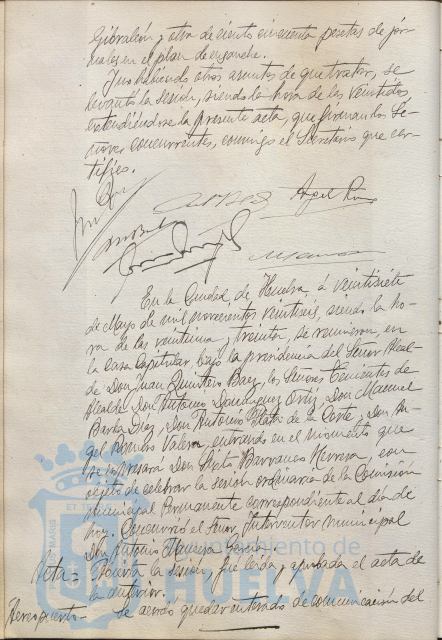 Gibraleón y otra de ciento cincuenta pesetas de jor-
nales en el plan de ensanche.
Y no habiendo otros asuntos de que tratar, se
levantó la sesión, siendo la hora de las veintidos
extendiéndose la presente acta, que firman los Se-
ñores concurrentes, conmigo el Secretario que cer-
tifico.
En la Ciudad de Huelva á veintisiete
de Mayo de mil novecientos veintiseis, siendo la ho-
ra de las veintiuna y treinta, se reunieron en
la Casa Capitular, bajo la presidencia del Señor Alcal-
de Don Juan Quintero Baez, los Señores Tenientes de
Alcalde Don Antonio Dominguez Ortiz, Don Manuel
Barba Diaz, Don Antonio de la Corte y Don An-
gel Romero Valera, entrando en el momento que
se expresará Don Sixto Barranco Herrera, con
objeto de celebrar la sesión ordinaria de la Comisión
municipal Permanente correspondiente al día de
hoy. Concurrió el Señor Interventor municipal
Don Antonio Garcia.
Acta = Abierta la sesión, fué leida y aprobada el acta de
la anterior.
se acordó quedar enterado de comunicación del
Ayuntamiento de
HUELVA